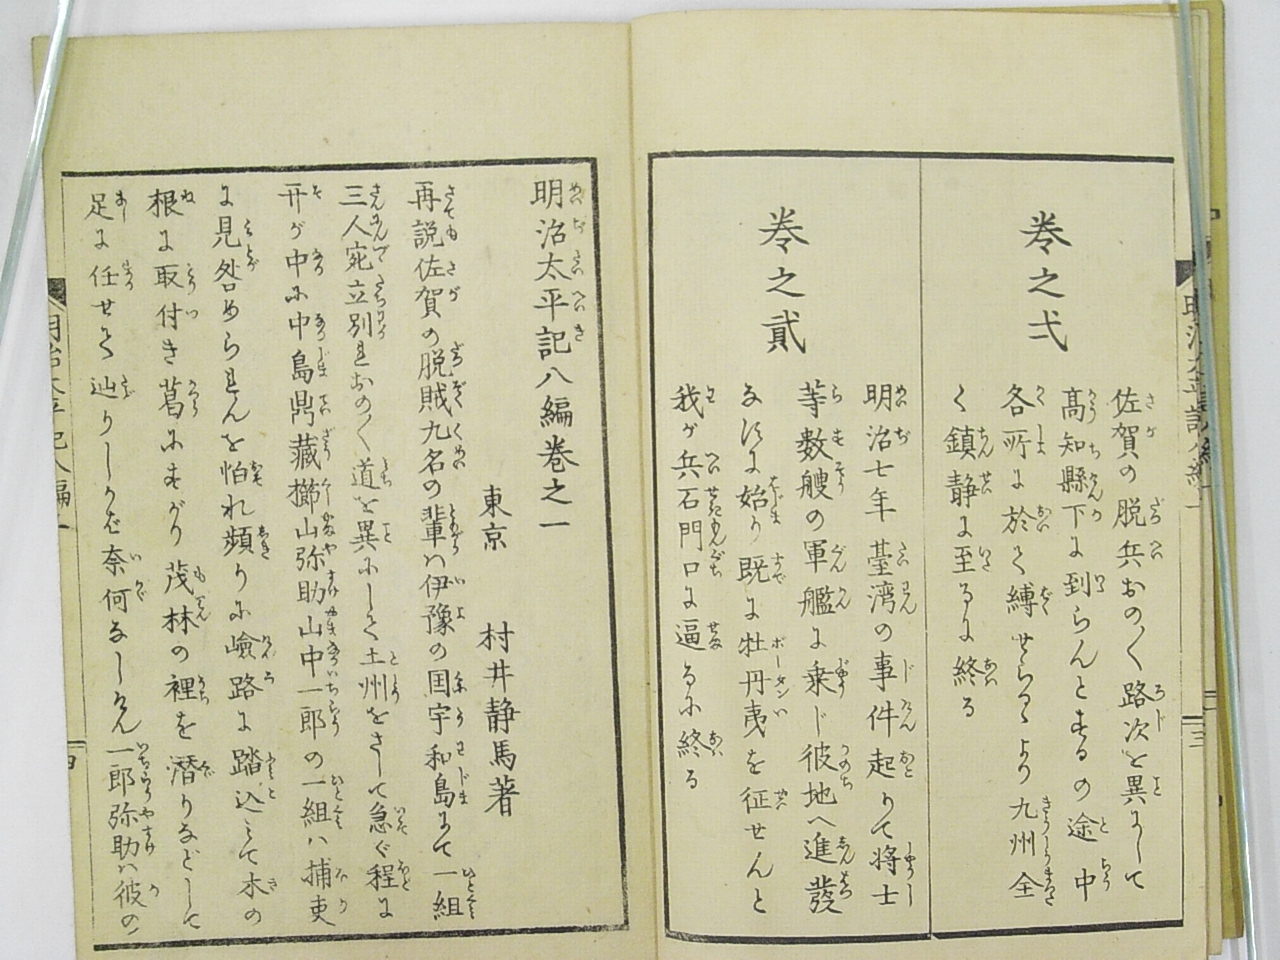 巻之弌
佐賀の脱兵おの〱路次を異にして
高知縣下に到らんとするの途中
各所に於て縛せらるゝより九州全
く鎮静に至るに終る
巻之貳
明治七年臺湾の事件起りて将士
等数艘の軍艦に乗じ彼地へ進發
なすに始り既に牡丹夷を征せんと
我が兵石門口に逼るに終る
明治太平記八編巻之一
東京 村井静馬著
再説佐賀の脱賊九名の輩ハ伊豫の国宇和島にて一組
三人宛立別れおの〱道を異にして土州をさして急ぐ程に
开が中に中島鼎藏櫛山弥助山中一郎の一組ハ捕吏
に見咎められんを怕れ頻りに嶮路に踏込みて木の
根に取付き葛にすがり茂林の裡を潜りなどして
足に任せて辿りしかど奈何なしけん一郎弥助ハ彼の
明治太平記八編一
三
明治太平記八編一
四